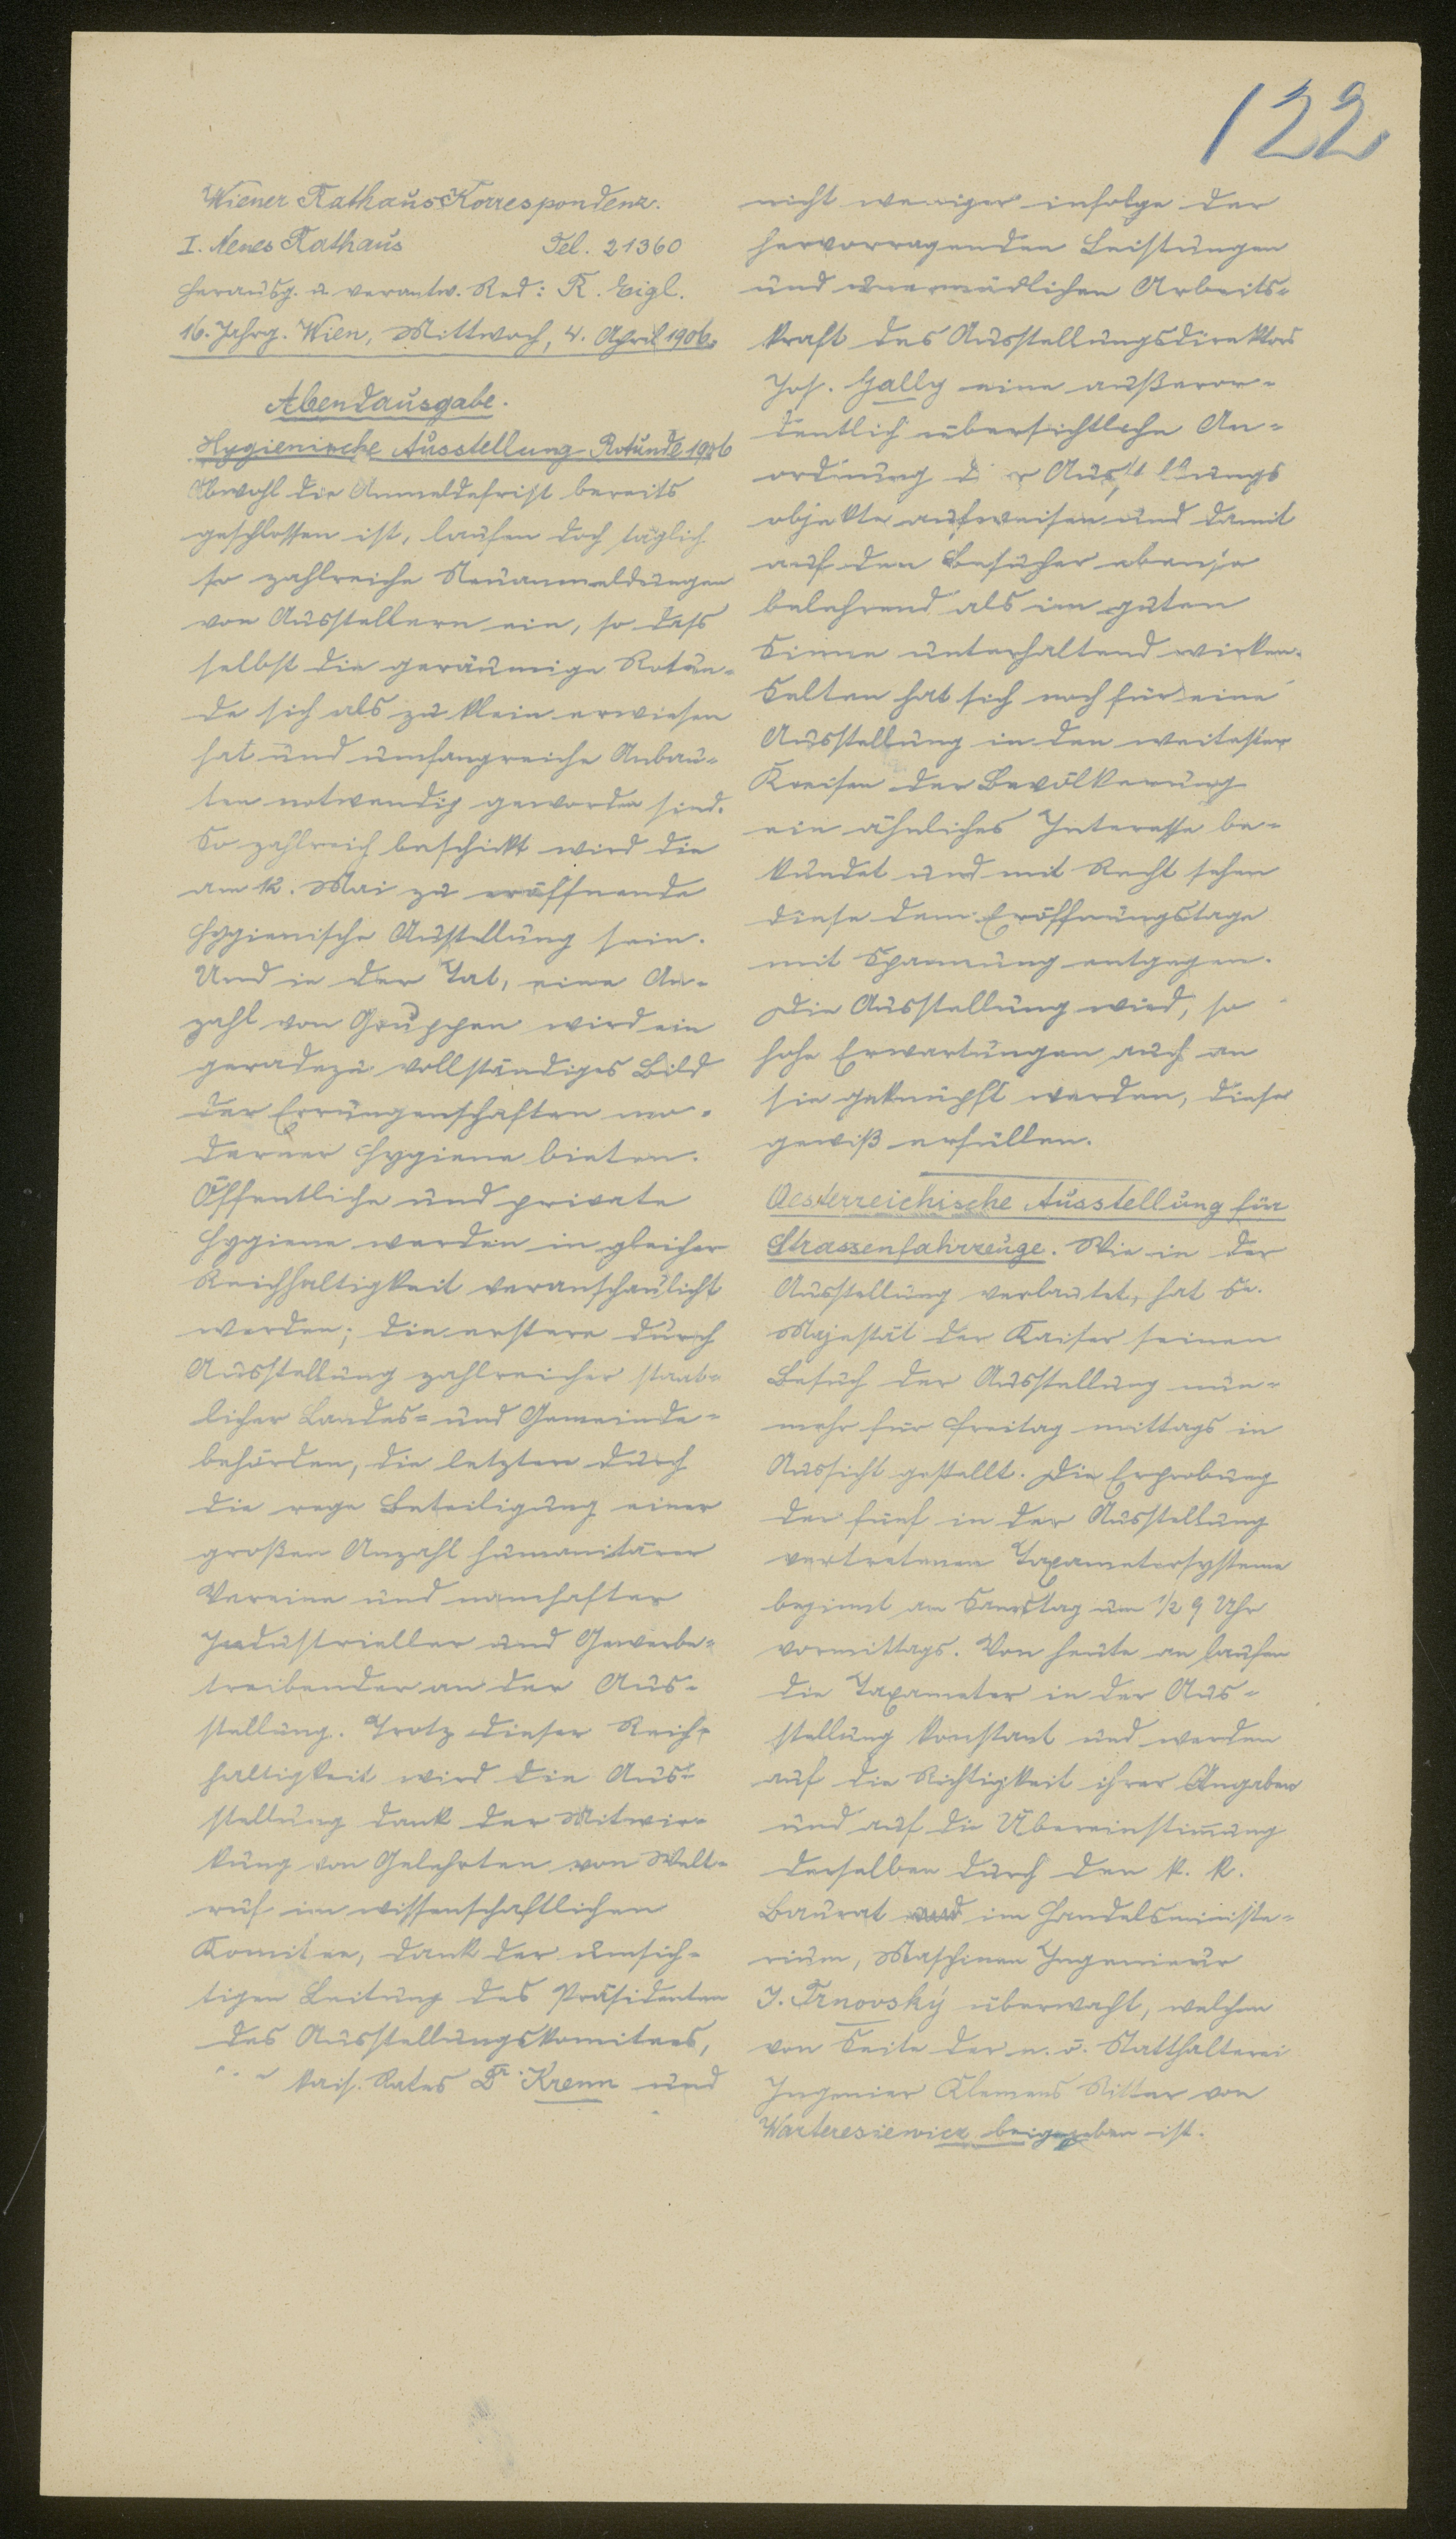 122
Wiener Rathaus Korrespondenz.
I. Neues Rathaus Tel. 21360
Herausg. u. verantw. Red: R. Eigl.
16. Jahrg. Wien, Mittwoch, 4. April 1906.
Abendausgabe.
Hygienische Ausstellung Rotunde 1906
Obwohl die Anmeldefrist bereits
geschlossen ist, laufen doch täglich
so zahlreiche Neuanmeldungen
von Ausstellern ein, so dass
selbst die geräumige Rotun-
de sich als zu klein erwiesen
hat und umfangreiche Anbau-
ten notwendig geworden sind.
So zahlreich beschickt wird die
am 12. Mai zu eröffnende
hygienische Austellung sein.
Und in der Tat, eine An-
zahl von Gruppen wird ein
geradezu vollständiges Bild
der Errungenschaften mo-
derner Hygiene bieten.
Öffentliche und private
Hygiene werden in gleicher
Reichhaltigkeit veranschaulicht
werden; die erstere durch
Ausstellung zahlreicher staat-
licher Landes= und Gemeinde-
behörden, die letztere durch
die rege Beteiligung einer
großen Anzahl humanitärer
Vereine und namhafter
Industrieller und Gewerbe-
treibender an der Aus-
stellung. Trotz dieser Reich-
haltigkeit wird die Aus-
stellung dank der Mitwir-
kung von Gelehrten von Welt-
ruf im wissenschaftlichen
Komitee, dank der umsich-
tigen Leitung des Präsidenten
des Ausstellungskomitees,
kais. Rates Dr. Krenn und
nicht weniger infolge der
hervorragenden Leistungen
und unermüdlichen Arbeits-
kraft des Ausstellungsdirektors
Jos. Gally eine außeror-
dentlich übersichtliche An-
ordnung der Ausstellungs
objekte aufweisen und damit
auf den Besucher ebenso
belehrend als im guten
Sinne unterhaltend wirken.
Selten hat sich noch für eine
Ausstellung in den weitesten
Kreisen der Bevölkerung
ein ähnliches Interesse be-
kundet und mit Recht sehen
diese dem Eröffnungstage
mit Spannung entgegen.
Die Ausstellung wird, so
hohe Erwartungen auch an
sie geknüpft werden, diese
gewiß erfüllen.
Oesterreichische Ausstellung für
Strassenfahrzeuge. Wie in der
Ausstellung verlautet, hat Se.
Majestät der Kaiser seinen
Besuch der Ausstellung nun-
mehr für Freitag mittags in
Aussicht gestellt. Die Erprobung
der fünf in der Ausstellung
vertretenen Taxametersysteme
beginnt am Samstag um 1/2 9 Uhr
vormittags. Von heute an laufen
die Taxameter in der Aus-
stellung konstant und werden
auf die Richtigkeit ihrer Angaben
und auf die Übereinstim̅ung
derselben durch den k. k.
Baurat im Handelsministe-
rium, Maschinen Ingenieur
J. Trnovský überwacht, welchem
von Seite der n. ö. Statthalterei
Ingenier Klemens Ritter von
Warteresiewicz beigegeben ist.